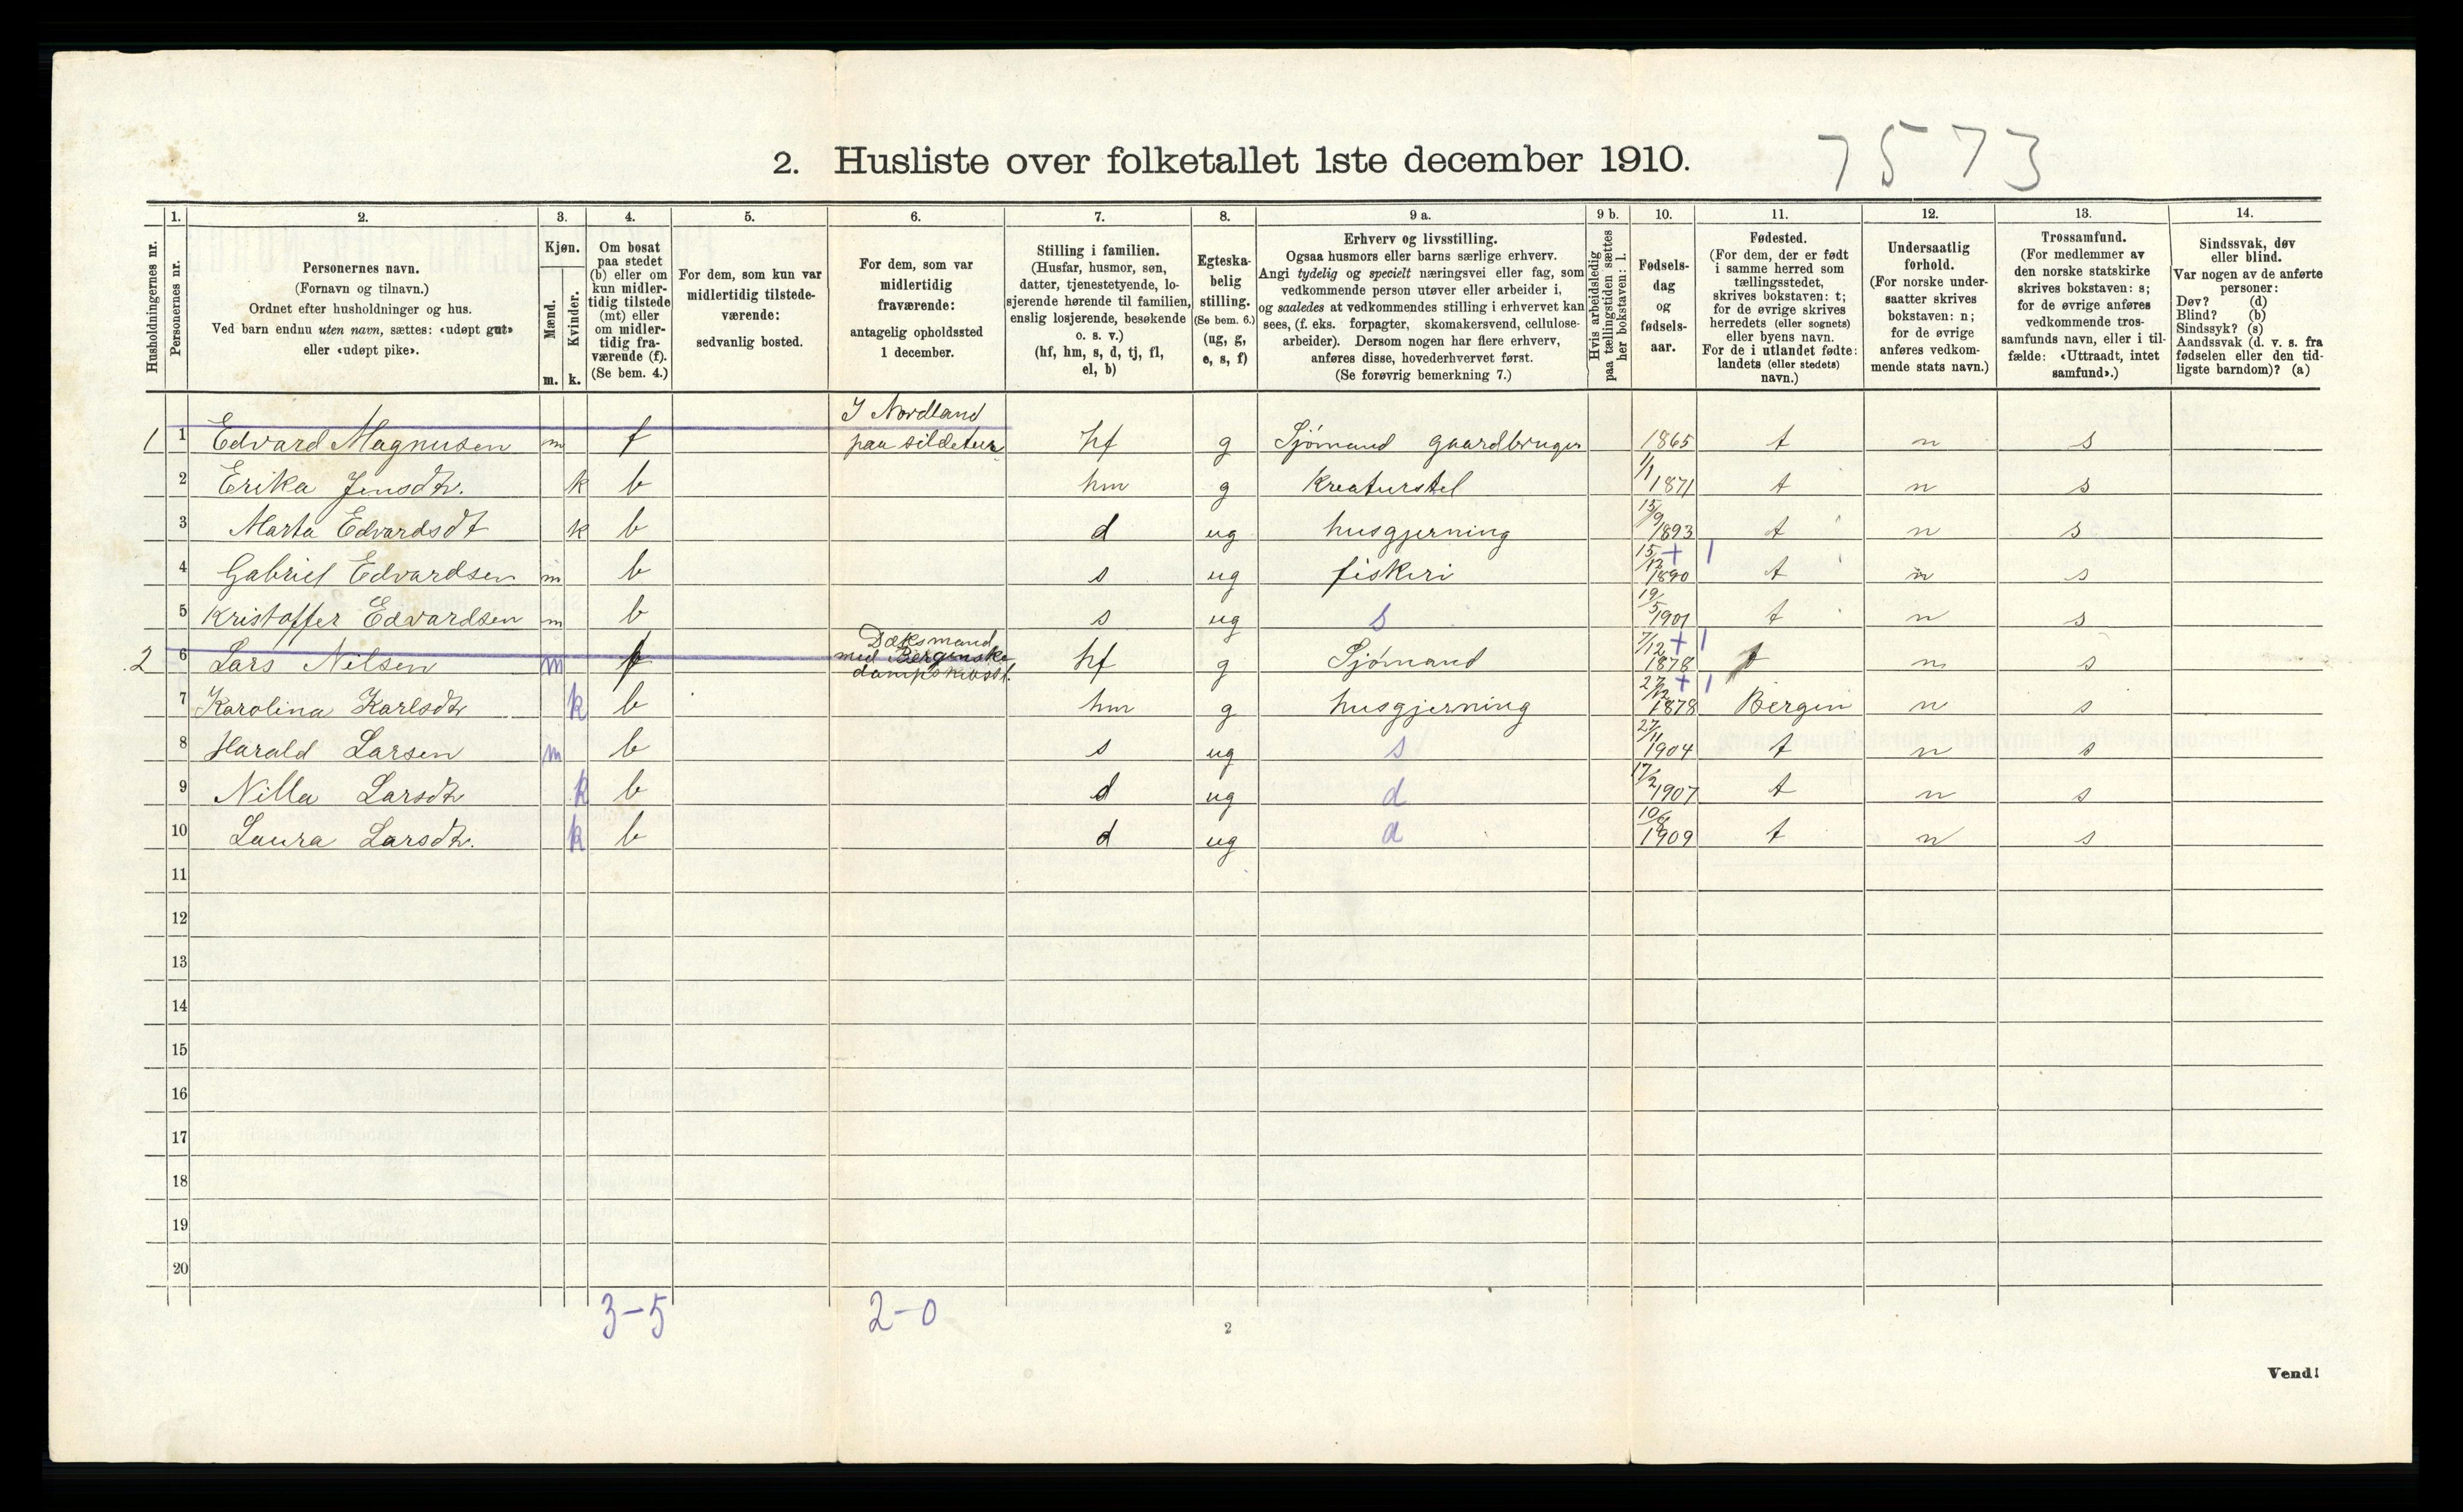 2. Husliste over folketallet 1ste december 1910.
7573
Husholdningernes nr.
1.
Personernes nr.
2.
Personernes navn.
(Fornavn og tilnavn.)
Ordnet efter husholdninger og hus.
Ved barn endnu uten navn, sættes: «udøpt gut»
eller «udøpt pike».
3.
Kjøn.
Mænd.
Kvinder.
m. k.
4.
Om bosat
paa stedet
(b) eller om
kun midler-
tidig tilstede
(mt) eller
om midler-
tidig fra-
værende (f).
(Se bem. 4.)
5.
For dem, som kun var
midlertidig tilstede-
værende:
sedvanlig bosted.
6.
For dem, som var
midlertidig
fraværende:
antagelig opholdssted
1 december.
7.
Stilling i familien.
(Husfar, husmor, søn,
datter, tjenestetyende, lo-
sjerende hørende til familien,
enslig losjerende, besøkende
o. s. v.)
(hf, hm, s, d, tj, fl,
el, b)
8.
Egteska-
belig
stilling.
(Se bem. 6.)
(ug, g,
e, s, f)
9 a.
Erhverv og livsstilling.
Ogsaa husmors eller barns særlige erhverv.
Angi tydelig og specielt næringsvei eller fag, som
vedkommende person utøver eller arbeider i,
og saaledes at vedkommendes stilling i erhvervet kan
sees, (f. eks. forpagter, skomakersvend, cellulose-
arbeider). Dersom nogen har flere erhverv,
anføres disse, hovederhvervet først.
(Se forøvrig bemerkning 7.)
9 b.
Hvis arbeidsledig
paa tællingstiden sættes
her bokstaven: l.
10.
Fødsels-
dag
og
fødsels-
aar.
11.
Fødested.
(For dem, der er født
i samme herred som
tællingsstedet,
skrives bokstaven: t;
for de øvrige skrives
herredets (eller sognets)
eller byens navn.
For de i utlandet fødte:
landets (eller stedets)
navn.)
12.
Undersaatlig
forhold.
(For norske under-
saatter skrives
bokstaven: n;
for de øvrige
anføres vedkom-
mende stats navn.)
13.
Trossamfund.
(For medlemmer av
den norske statskirke
skrives bokstaven: s;
for de øvrige anføres
vedkommende tros-
samfunds navn, eller i til-
fælde: «Uttraadt, intet
samfund».)
14.
Sindssvak, døv
eller blind.
Var nogen av de anførte
personer:
Døv? (d)
Blind? (b)
Sindssyk? (s)
Aandssvak (d. v. s. fra
fødselen eller den tid-
ligste barndom)? (a)
I Nordland
1 1 Edvard Magnusen m f paa sildetur hf g Sjömand gaardbruger 1865 t n s
2 Erika Jensdtr. k b hm g Kreaturstel 1/1 1871 t n s
3 Marta Edvardsdt k b d ug husgjerning 15/9 1893 t n s
4 Gabriel Edvardsen m b s ug fiskeri 15/12 1890 + 1 t n s
5 Kristoffer Edvardsen m b s ug s 19/5 1901 t n s
2 6 Lars Nilsen m f Dæksmand
med Bergenske
hf g Sjömand 7/12 1878 + 1 t n s
7 Karolina Karlsdtr k b hm g husgjerning 27/12 1878 + 1 Bergen n s
8 Harald Larsen m b s ug s 27/11 1904 t n s
9 Nilla Larsdtr k b d ug d 17/2 1907 t n s
10 Laura Larsdtr. k b d ug d 1909 t n s
11
12
13
14
15
16
17
18
19
20
3-5 2-0
2
Vend!